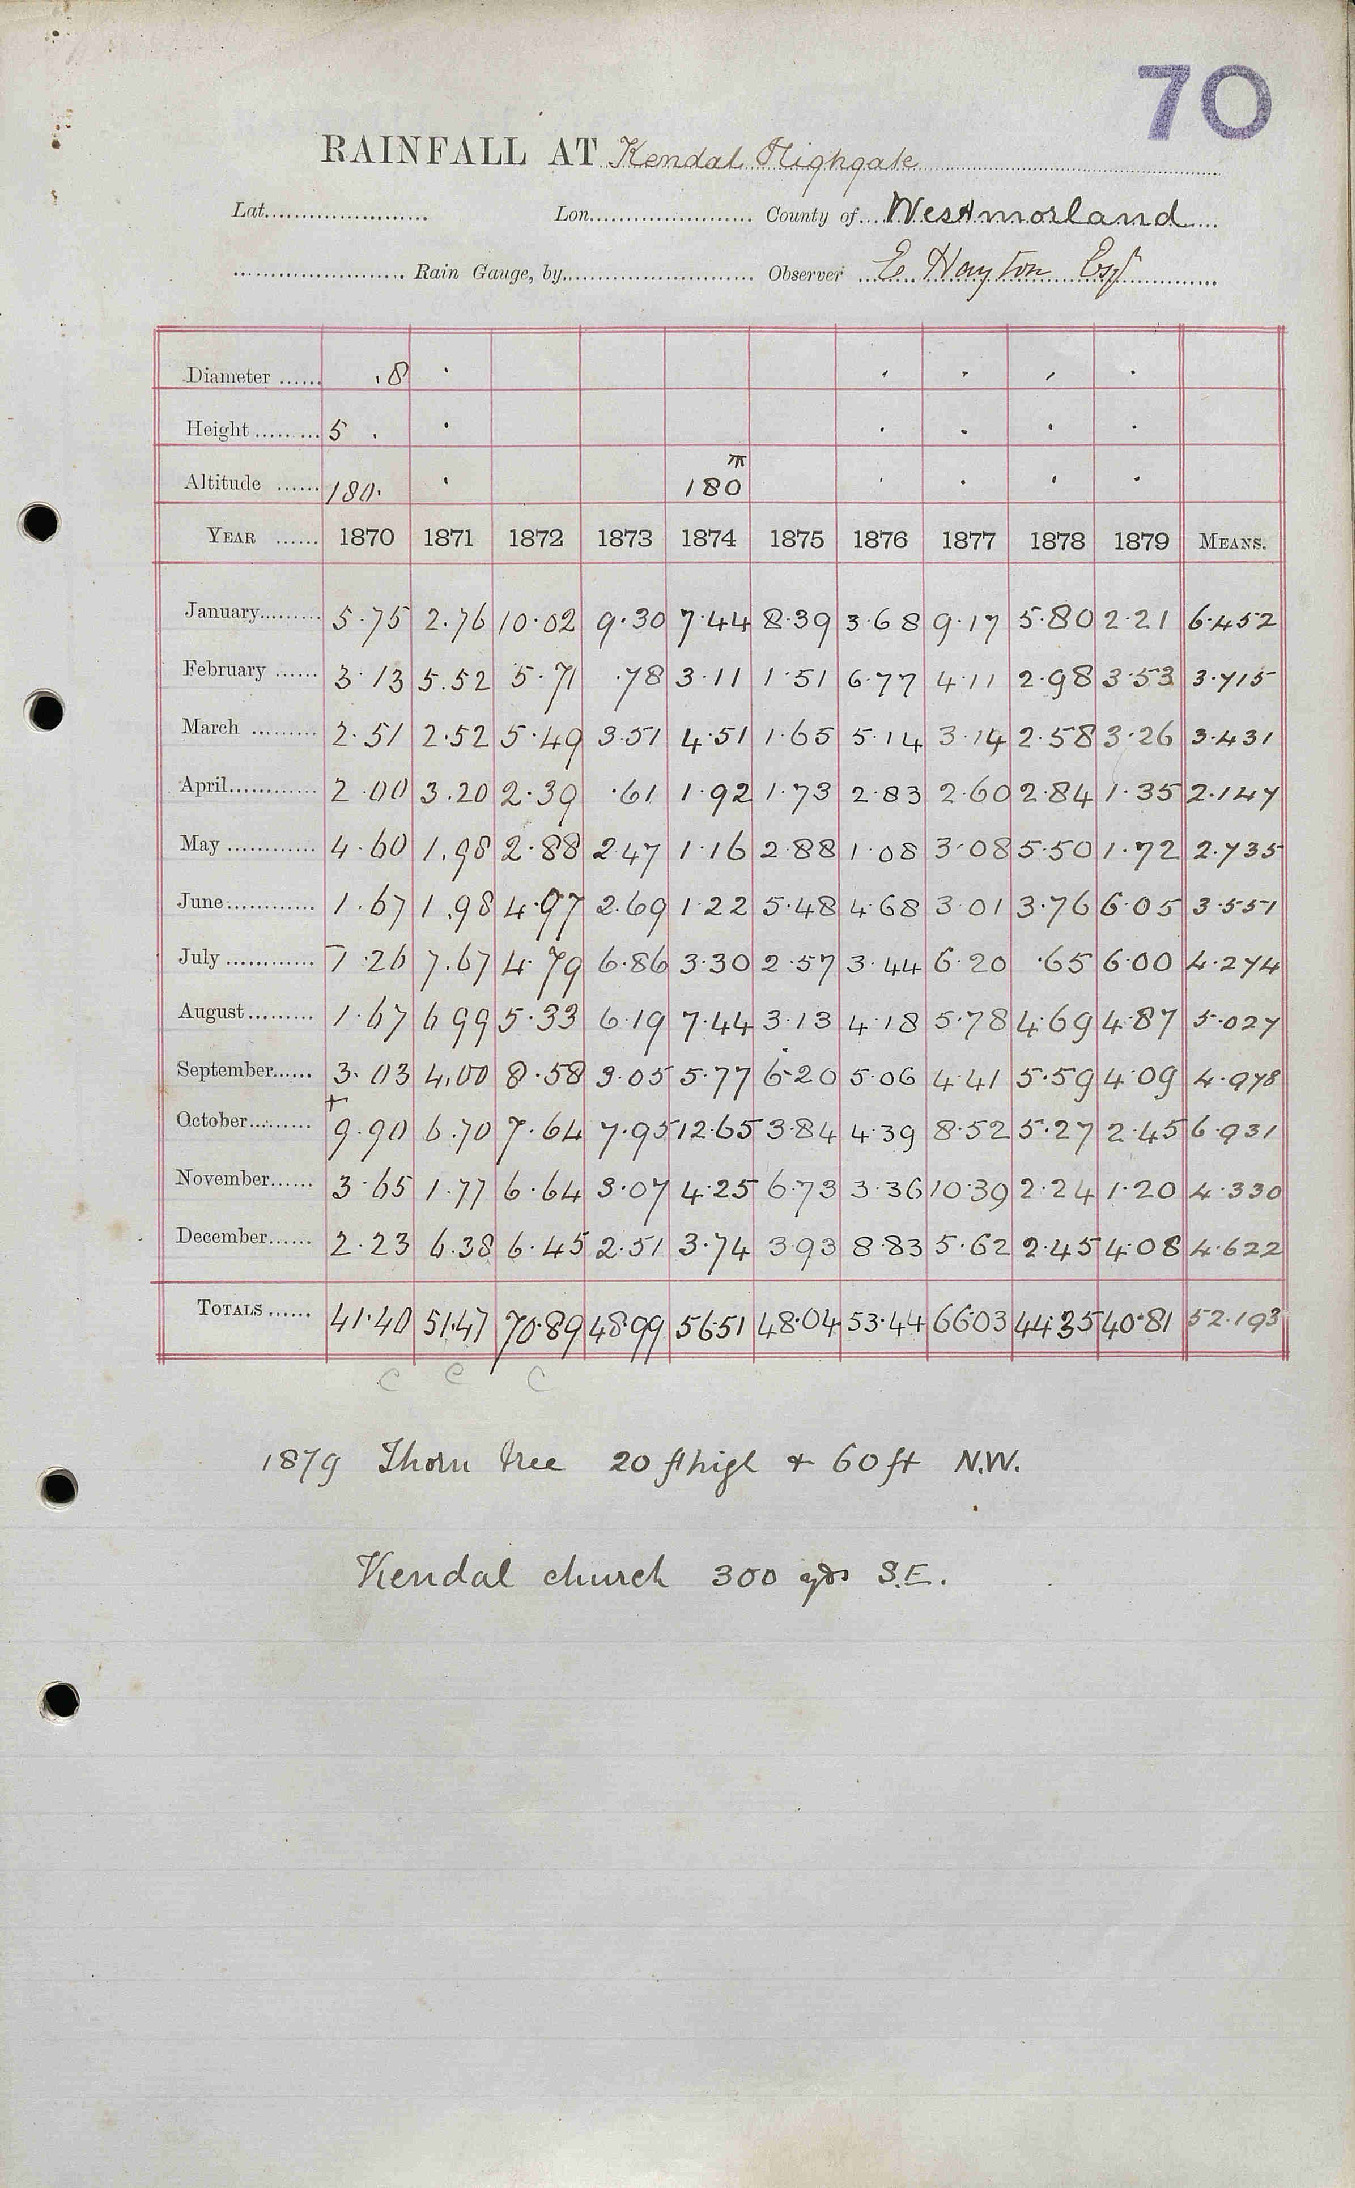 70
RAINFALL AT Kendal Highgate
Lat. Lon. County of Westmorland
Rain Gauge, by Observer E Hayton Esqr
Diameter ...... .8
Height ......... 5 .
Altitude ...... 180. 180
YEAR ...... 1870 1871 1872 1873 1874 1875 1876 1877 1878 1879 MEANS.
January......... 5.75 2.76 10.02 9.30 7.44 8.39 3.68 9.17 5.80 2.21 6.452
February ...... 3.13 5.52 5.71 .78 3.11 1.51 6.77 4.11 2.98 3.53 3.715
March ......... 2.51 2.52 5.49 3.51 4.51 1.65 5.14 3.14 2.58 3.26 3.431
April............ 2.00 3.20 2.39 .61 1.92 1.73 2.83 2.60 2.84 1.35 2.147
May ............ 4.60 1.98 2.88 2.47 1.16 2.88 1.08 3.08 5.50 1.72 2.735
June............ 1.67 1.98 4.97 2.69 1.22 5.48 4.68 3.01 3.76 6.05 3.551
July ............ 7.26 7.67 4.79 6.86 3.30 2.57 3.44 6.20 .65 6.00 4.274
August......... 1.67 6.99 5.33 6.19 7.44 3.13 4.18 5.78 4.69 4.87 5.027
September...... 3.03 4.00 8.58 3.05 5.77 6.20 5.06 4.41 5.59 4.09 4.978
October......... + 9.90 6.70 7.64 7.95 12.65 3.84 4.39 8.52 5.27 2.45 6.931
November...... 3.65 1.77 6.64 3.07 4.25 6.73 3.36 10.39 2.24 1.20 4.330
December...... 2.23 6.38 6.45 2.51 3.74 3.93 8.83 5.62 2.45 4.08 4.622
TOTALS ...... 41.40 51.47 70.89 48.99 56.51 48.04 53.44 66.03 44.35 40.81 52.193
C C C
1879 Thorn tree 20 ft high + 60 ft N.W.
Kendal church 300 yds S.E.